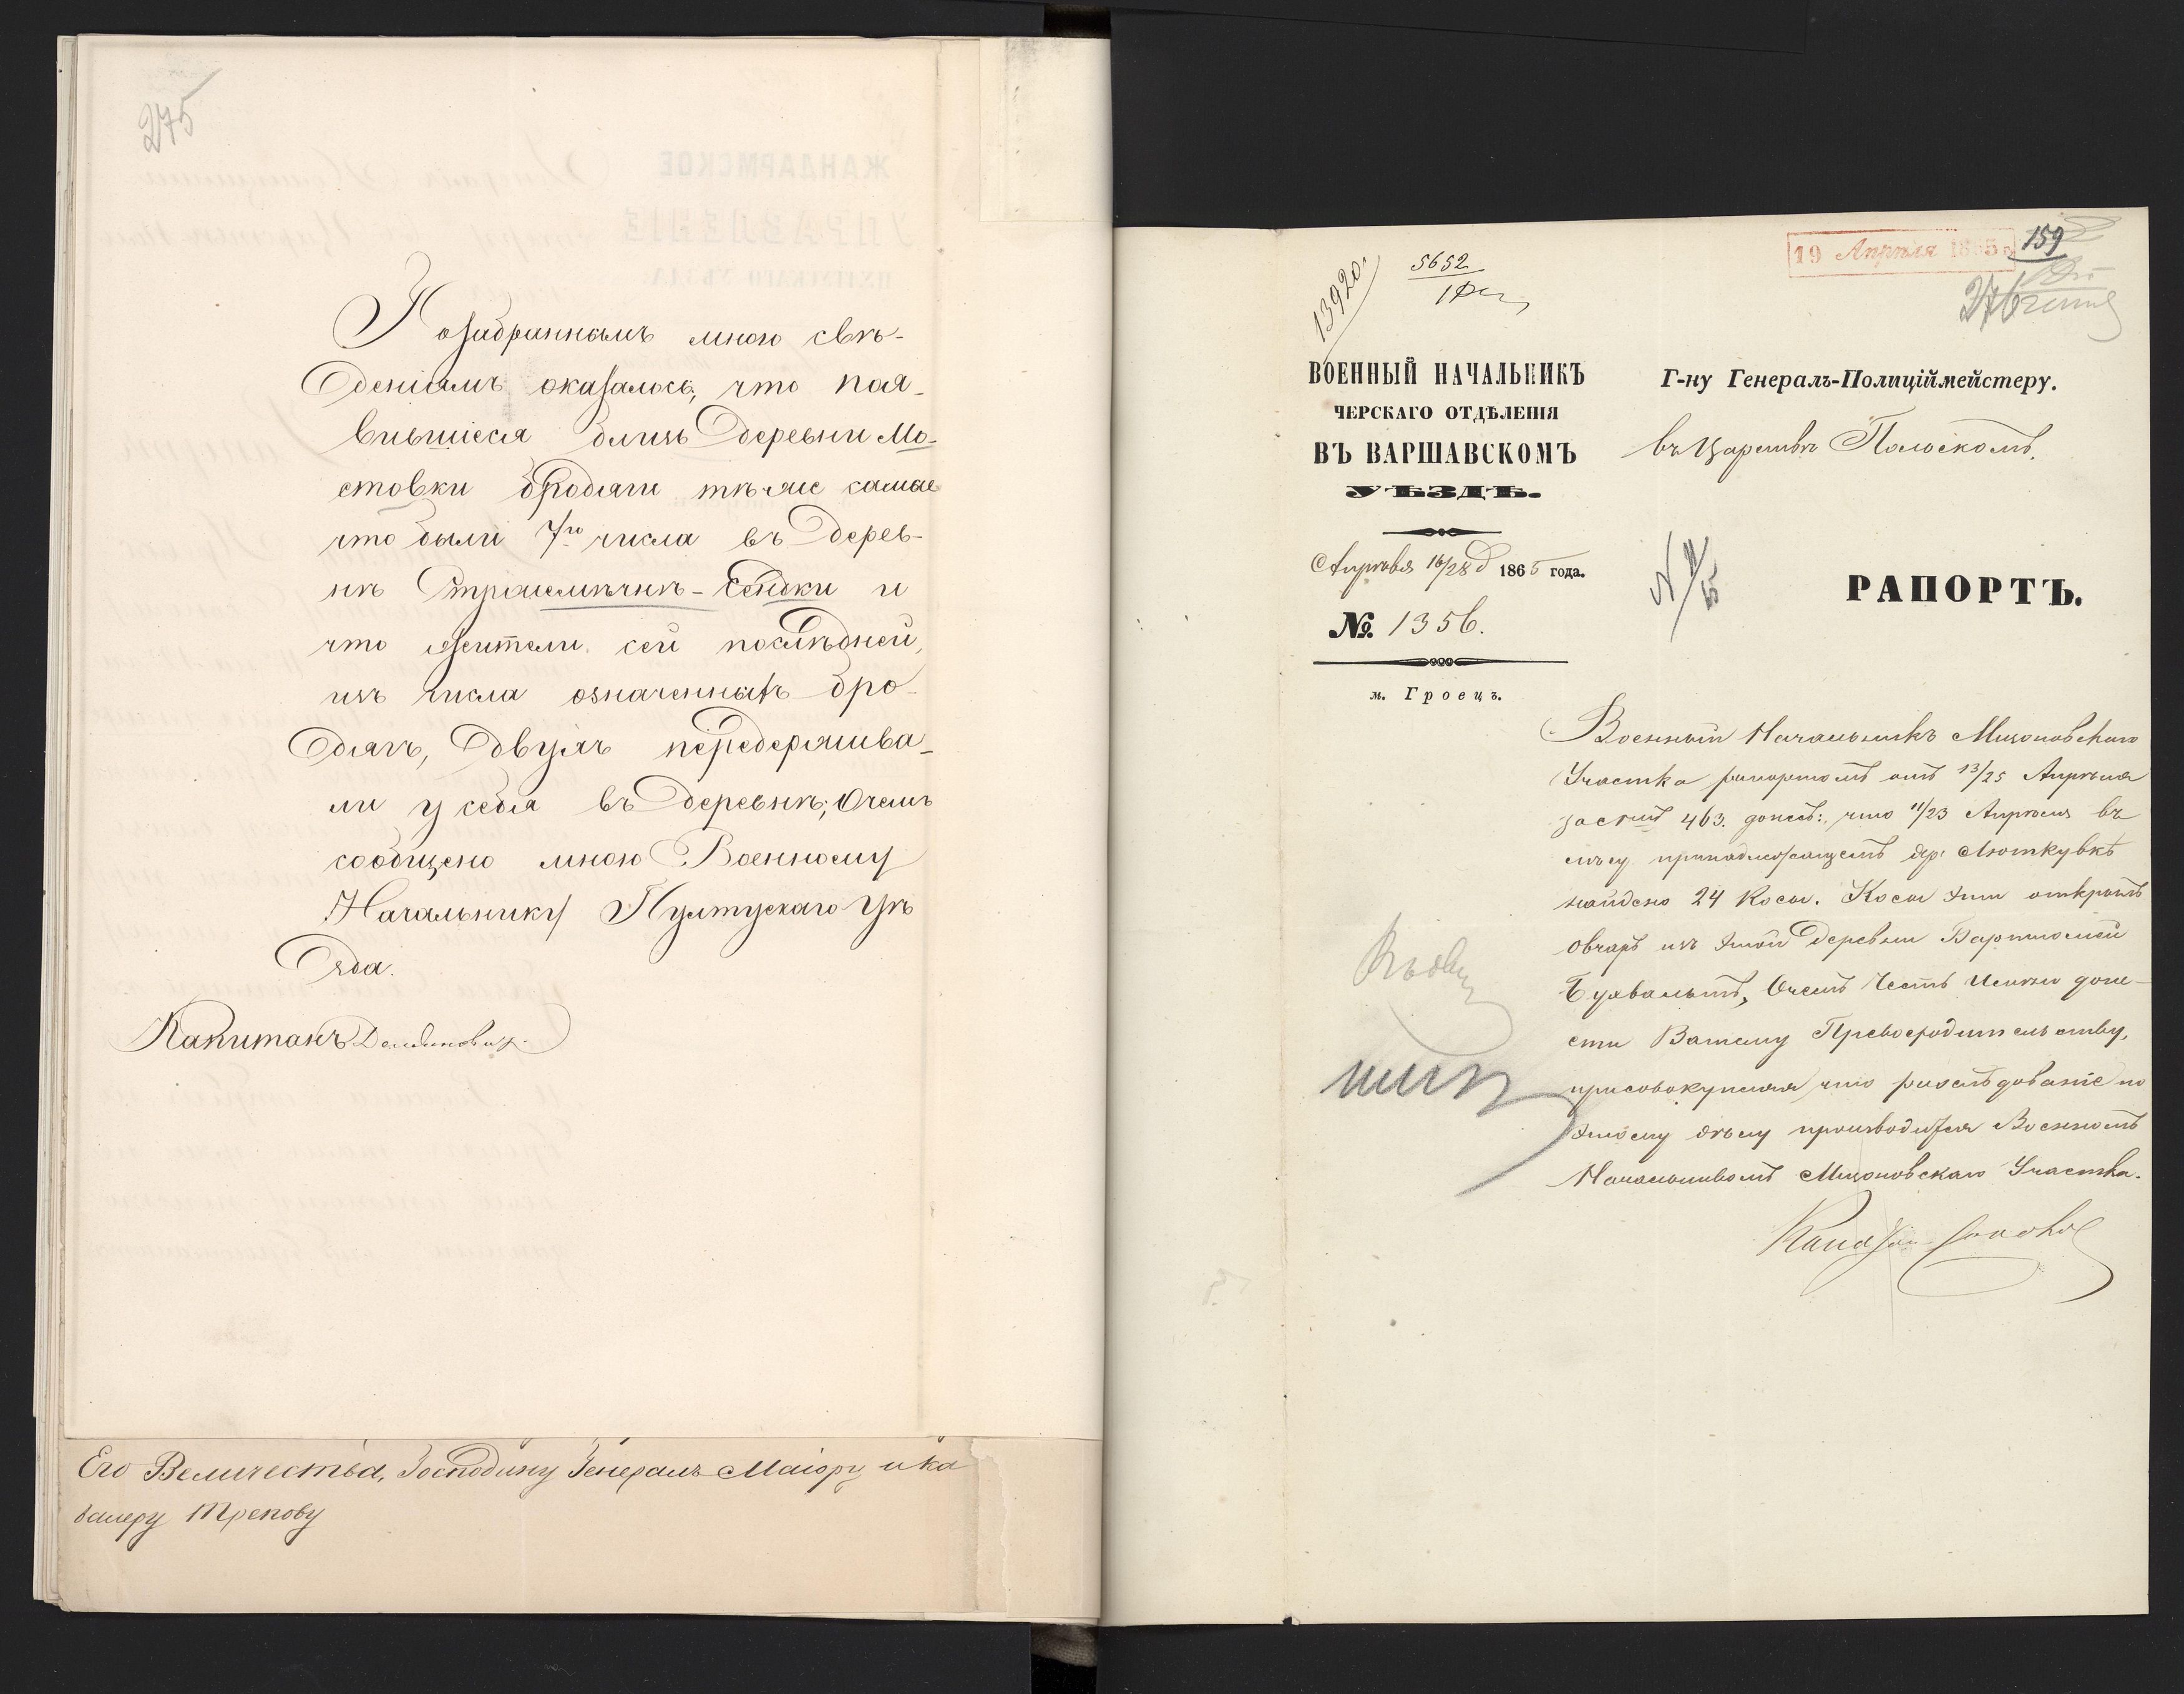 275
По забраннымъ мною свѣ-
деніямъ оказалось, что поя-
вившіеся близь деревни Мо-
стовки бродяги тѣ же самые
что были 7го числа въ дерев-
нѣ Стржемѣчнѣ-Сендки и
что жители сей послѣдней,
изъ числа означенныхъ бро-
дягъ, двухъ передержива-
ли у себя въ деревнѣ; о чемъ
сообщено мною Военному
Начальнику Пултускаго Уѣ
зда.
Капитанъ
Его Величества, Господину Генералъ Маіору и ка
валеру Трепову
13920.
5652
19 Апрѣля 1865 г.
159
276
ВОЕННЫЙ НАЧАЛЬНИКЪ
ЧЕРСКАГО ОТДѢЛЕНІЯ
ВЪ ВАРШАВСКОМЪ
УѢЗДѢ.
Апрѣля 16/28 д 1865 года.
№. 1356.
м. Гроецъ.
Г-ну Генералъ-Полиціймейстеру.
въ Царствѣ Польскомъ.
РАПОРТЪ.
Военный Начальникъ Мщоновскаго
Участка рапортомъ отъ 13/25 Апрѣля
за № 463. донесъ: что 11/23 Апрѣля въ
лѣсу принадлежащемъ дер. Люткувкѣ
найдено 24 косы. Косы эти открылъ
овчаръ изъ этой деревни Бартломей
Бухвальтъ, о чемъ честь имѣю доне-
сти Вашему Превосходительству,
присовокупляя что разслѣдованіе по
этому дѣлу производится Военнымъ
Начальникомъ Мщоновскаго Участка.